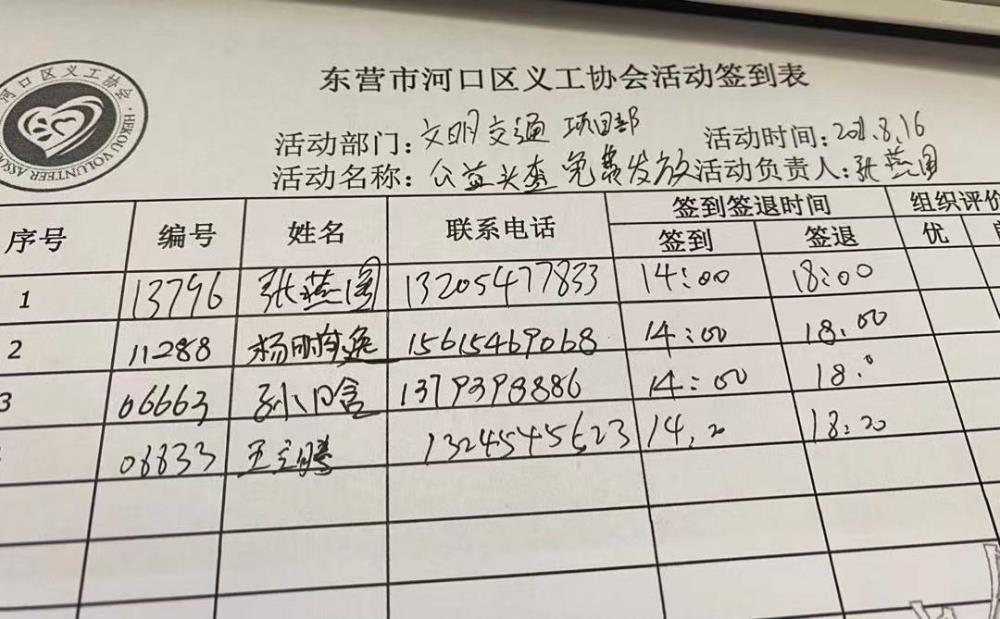 东营市河口区义工协会活动签到表
河口区义工协会
HEKOU VOLUNTEER ASSO
活动部门：文明交通 项目部 活动时间：2021.8.16
活动名称：公益头盔免费发放 活动负责人：张燕图
序号 编号 姓名 联系电话 签到签退时间 组织评价
签到 签退 优
1 13796 张燕图 13205477833 14:00 18:00
2 11288 杨 15615469068 14:00 18.00
3 06663 孙日含 1379398886 14:00 18.0
08833 王立鹏 13245545623 14. 18:20